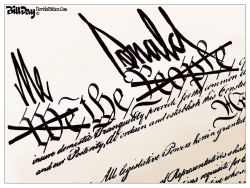 BillDay FloridaPolitics.com
Me Donald
We the People
insure domestic Tranquility, provide for the common
and our Posterity, do ordain and establish this Const
All legislative Powers herein granted
of Representatives shall
requisite for